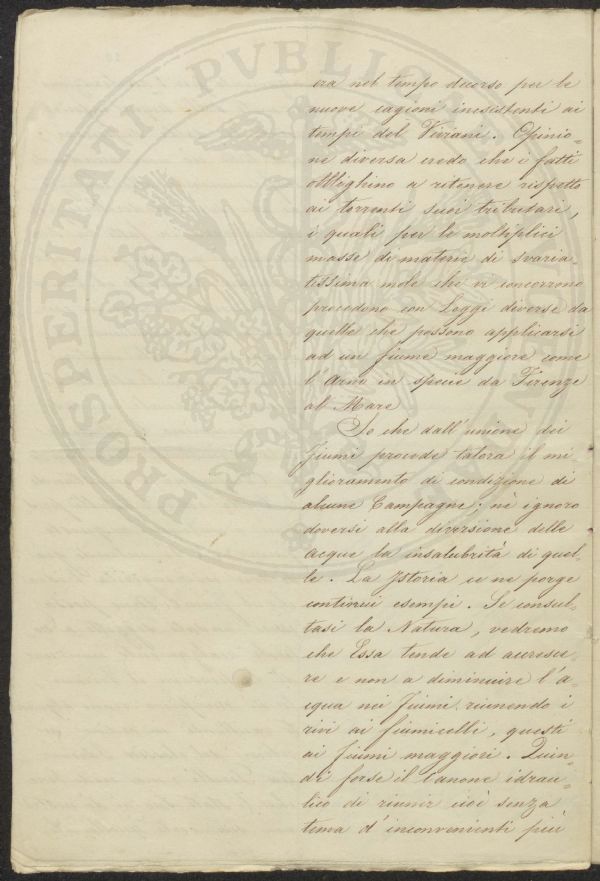 PROSPERITATI PVBLIC
era nel tempo decorso per le
nuove cagioni inesistenti ai
tempi del Viviani. Opinio=
ne diversa credo che i fatti
obblighino a ritenere rispetto
ai torrenti suoi tributari,
i quali per le moltiplici
masse di materie di svaria=
tissima mole che vi concorrono
procedono con Leggi diverse da
quelle che possono applicarsi
ad un fiume maggiore come
l'Arno in specie da Firenze
al Mare
So che dall'unione dei
fiumi procede talora il mi=
glioramento di condizione di
alcune Campagne; nè ignoro
doversi alla diversione delle
acque la insalubrità di quel=
le. La Istoria ce ne porge
continui esempi. Se consul=
tasi la Natura, vedremo
che Essa tende ad accresce=
re e non a diminuire l'a=
cqua nei fiumi riunendo i
rivi ai fiumicelli, questi
ai fiumi maggiori. Quin=
di forse il Canone idrau=
lico di riunir cioè senza
tema d'inconvenienti più